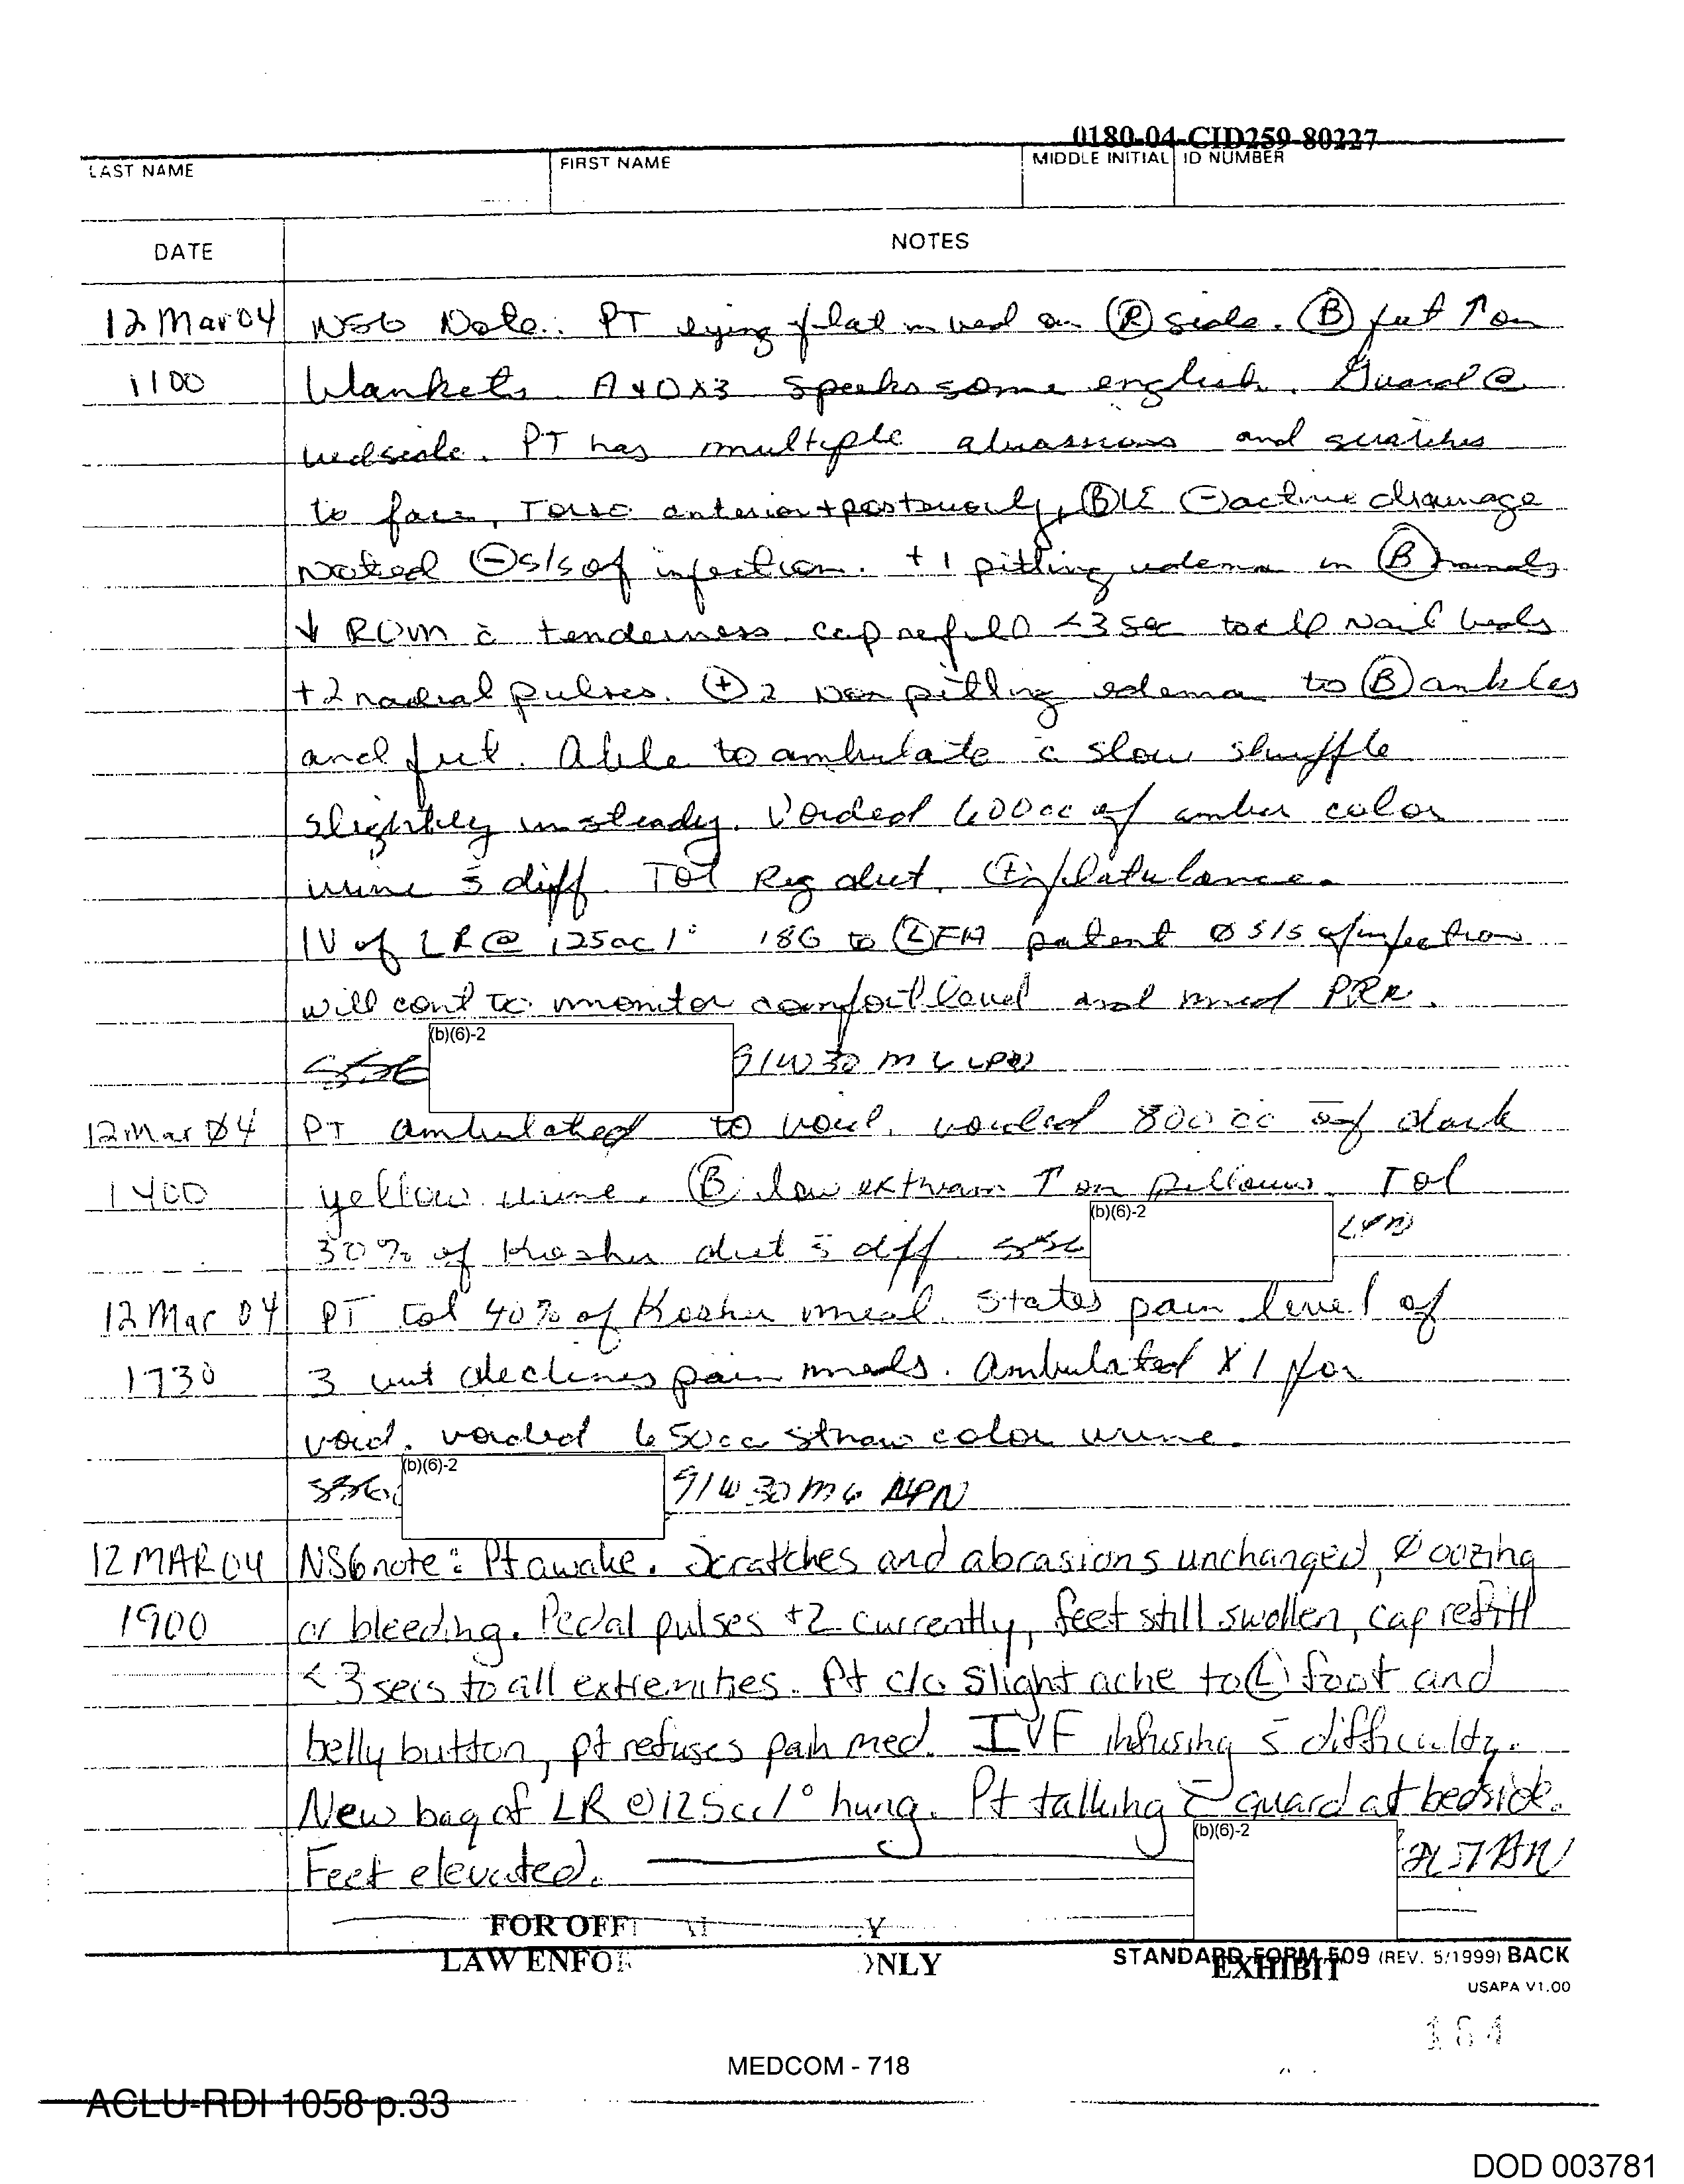 0180-04-CID259-80227
LAST NAME FIRST NAME MIDDLE INITIAL ID NUMBER
DATE NOTES
12 Mar 04 NSG Note: PT lying flat in bed on Ⓡ side. Ⓑ feet ↑ on
1100 blankets A+OX3 speaks some english. Guard @
bedside. PT has multiple abrassions and scratches
to face, Torso anterior + posteriorly, Ⓑ LE ⊖ active drainage
Noted ⊖ s/s of infection. +1 pitting edema in Ⓑ hands
↓ ROM c̄ tenderness cap refill <3 sec to all nail beds
+2 radial pulses. ⊕2 non pitting edema to Ⓑ ankles
and feet. Able to ambulate c̄ slow shuffle
slightly unsteady. Voided 600cc of amber color
urine s̄ diff. Tol Reg diet. ⊕ flatulance.
IV of LR @ 125cc/° 18G to Ⓛ FA patent Ø s/s of infection
will cont to monitor comfort level and med PRN.
SSG (b)(6)-2 91W30 M6 LPN
12 Mar Ø4 PT ambulated to void. voided 800 cc of dark
1400 yellow urine. Ⓑ low extrem ↑ on pillows. Tol
30% of Kosher diet s̄ diff. SSG (b)(6)-2 LPN
12 Mar 04 PT tol 40% of Kosher meal. States pain level of
1730 3 but declines pain meds. Ambulated X1 for
void. voided 650cc straw color urine.
SSG (b)(6)-2 91W30M6 LPN
12 MAR 04 NSG note: Pt awake. Scratches and abrasions unchanged, Ø oozing
1900 or bleeding. Pedal pulses +2 currently, feet still swollen, cap refill
<3 secs to all extremities. Pt c/o slight ache to Ⓛ foot and
belly button, pt refuses pain med. IVF infusing s̄ difficulty.
New bag of LR @ 125cc/1° hung. Pt talking c̄ guard at bedside.
Feet elevated. (b)(6)-2
FOR OFFI
LAW ENFO NLY
STANDARD FORM 509 (REV. 5/1999) BACK
EXHIBIT
USAPA V1.00
164
MEDCOM - 718
ACLU-RDI 1058 p.33
DOD 003781